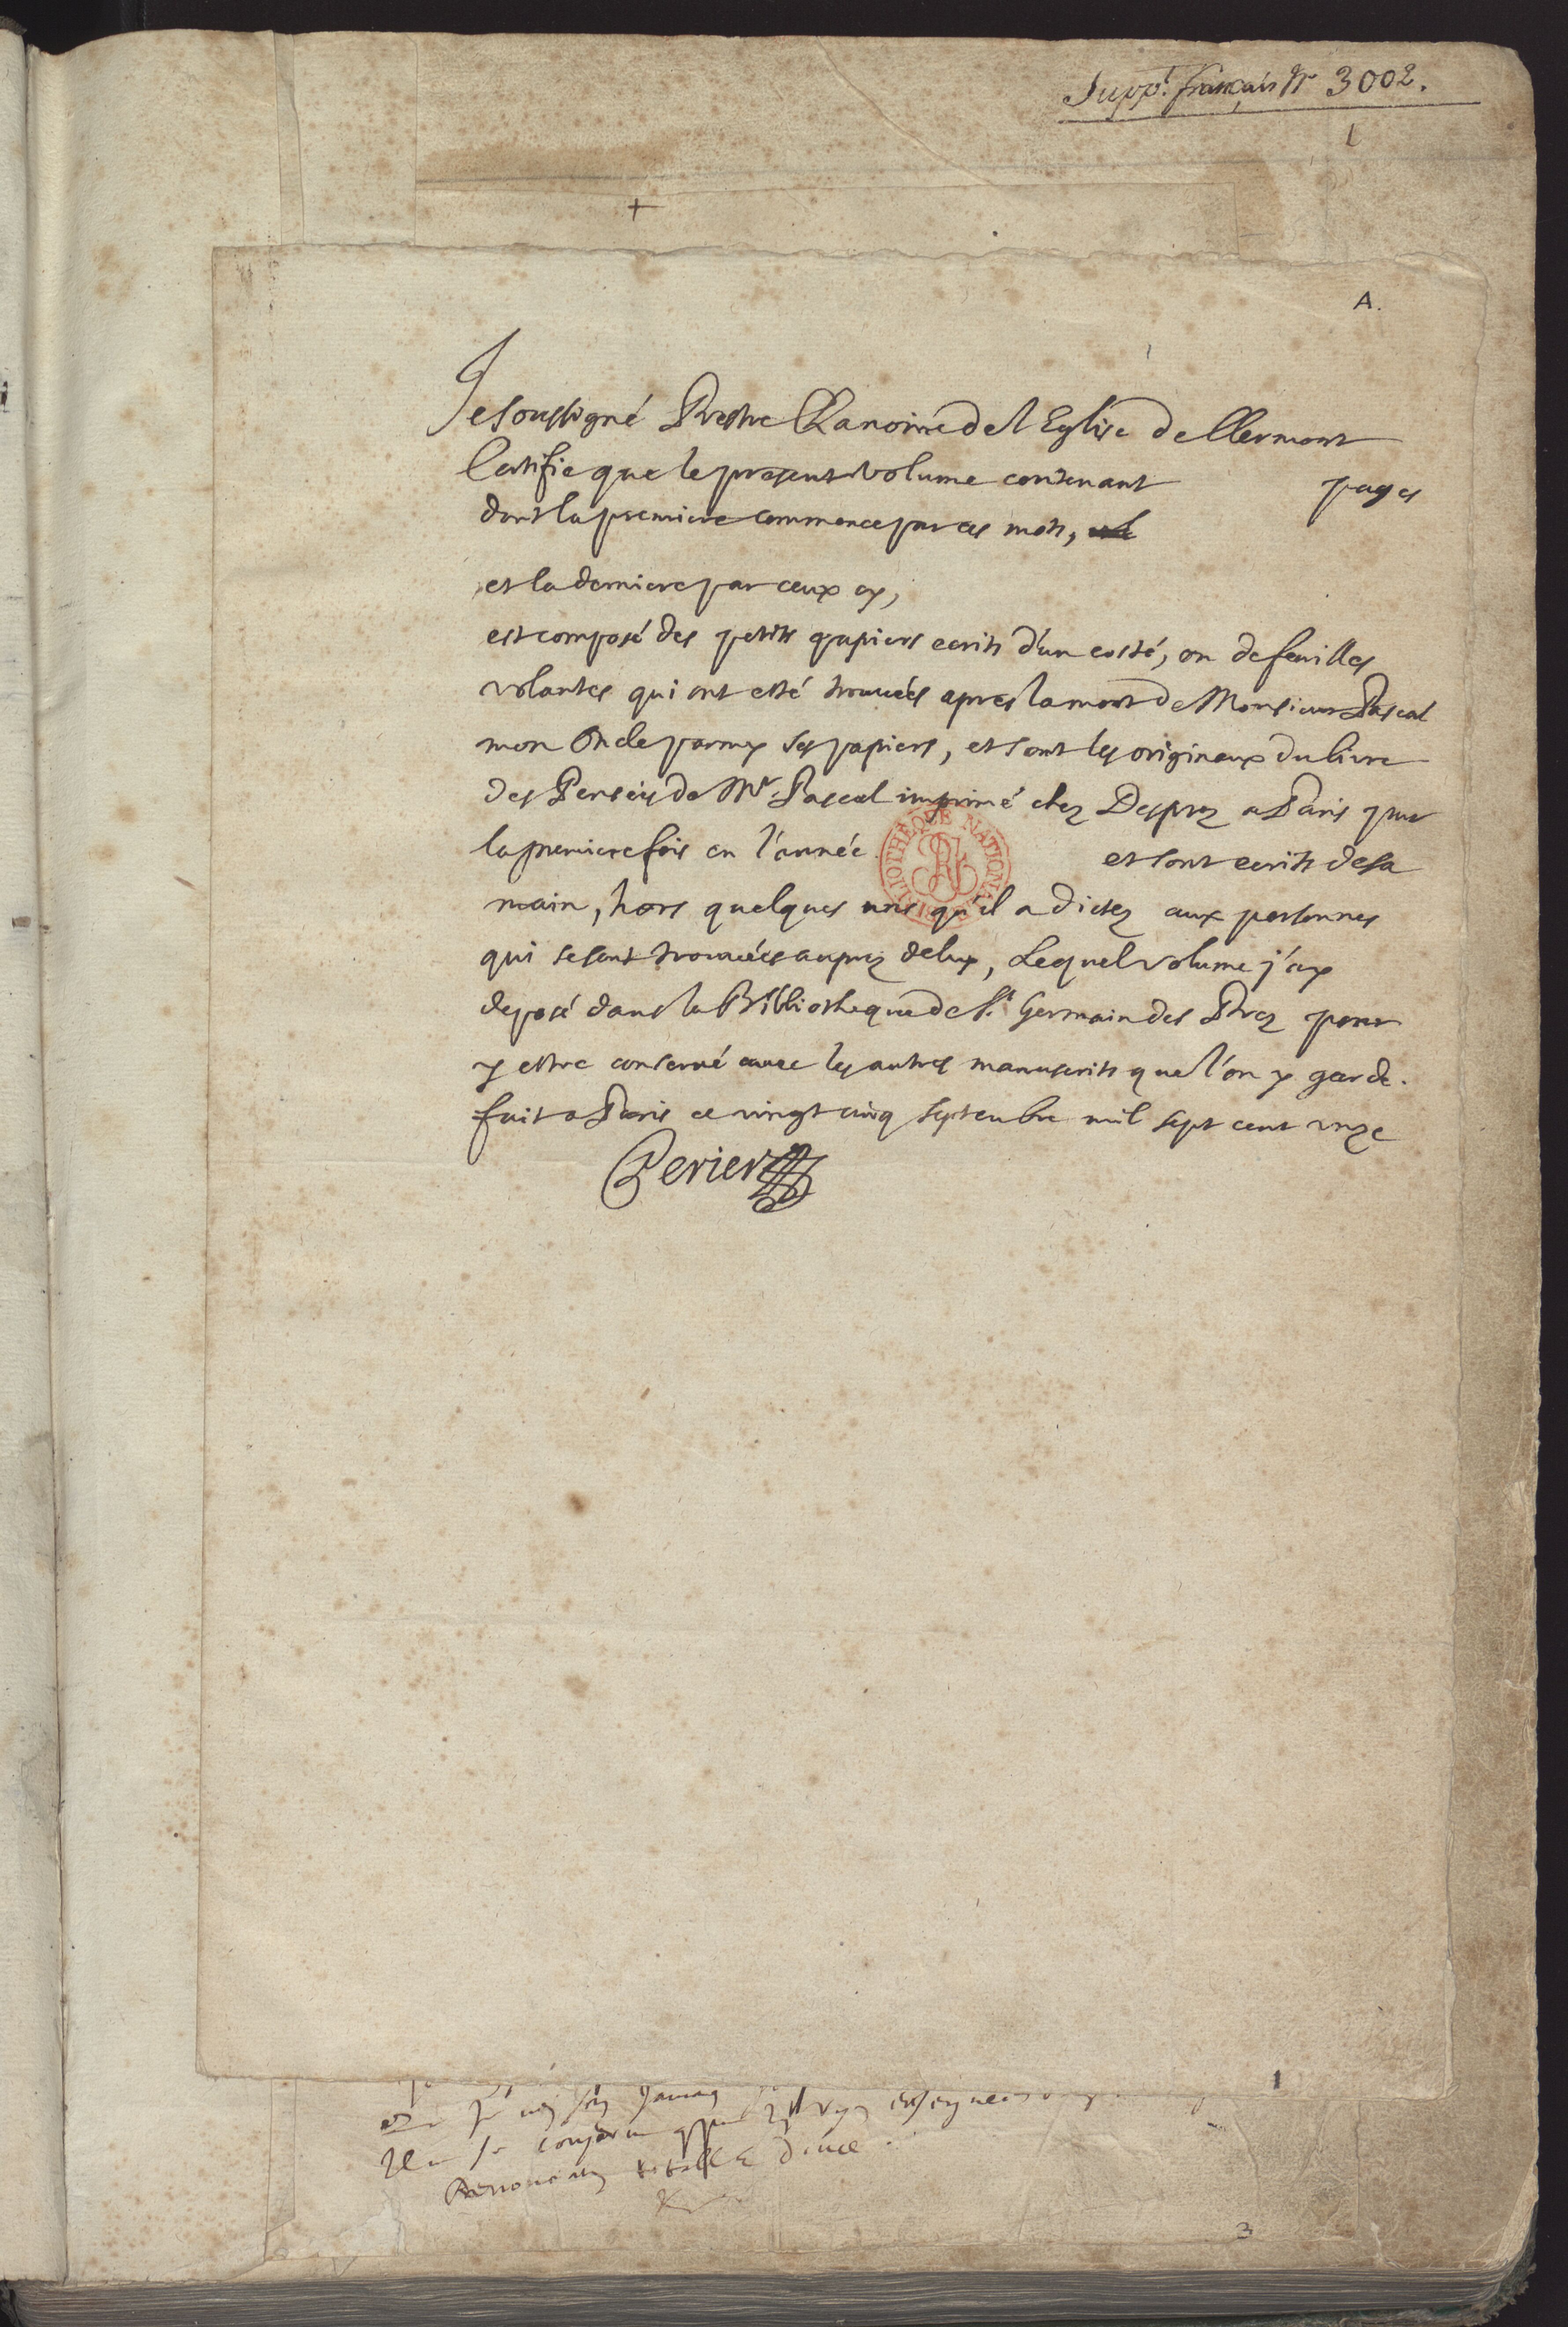 Suppt. français No 3002.
1
+
A.
Je soussigné Prestre Chanoine de l'Eglise de Clermont
Certifie que le present volume contenant pages
dont la premiere commence par ces mots,
et la derniere par ceux cy,
est composé des petits papiers ecrits d'un costé, ou de feuilles
volantes qui ont esté trouvées apres la mort de Monsieur Pascal
mon Oncle parmy ses papiers, et sont les originaux du livre
des Pensées de Mr. Pascal imprimé chez Desprez a Paris pour
la premiere fois en l'année et sont ecrits de sa
main, hors quelques uns qu'il a dictez aux personnes
qui se sont trouvées auprez de luy, Lequel volume j'ay
deposé dans la Bibliotheque de St. Germain des Prez pour
y estre conservé avec les autres manuscrits que l'on y garde.
fait a Paris ce vingt cinq septembre mil sept cent unze
Perier
BIBLIOTHÈQUE NATIONALE
1
Renonciation totale et douce.
3